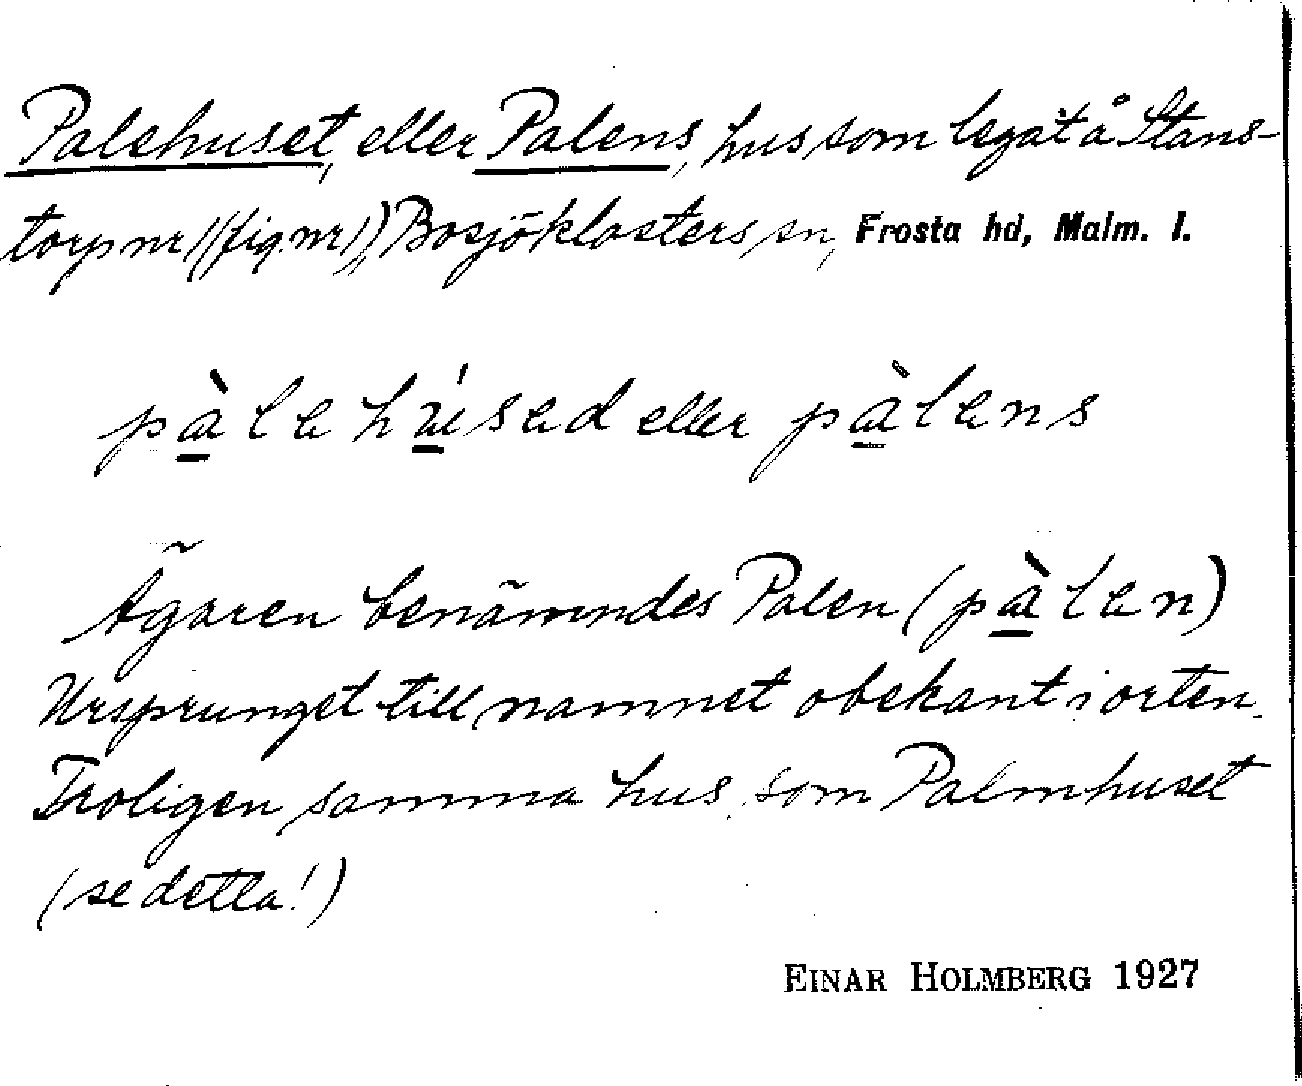 Palehuset, eller Palens, hus som legat å Stans-
torp nr 1 (fig. nr 1), Bosjöklosters sn, Frosta hd, Malm. l.
pàlehúsed eller pàlens
Ägaren benämndes Palen (pàlen)
Ursprunget till namnet obekant i orten.
Troligen samma hus som Palmhuset
(se detta!)
EINAR HOLMBERG 1927